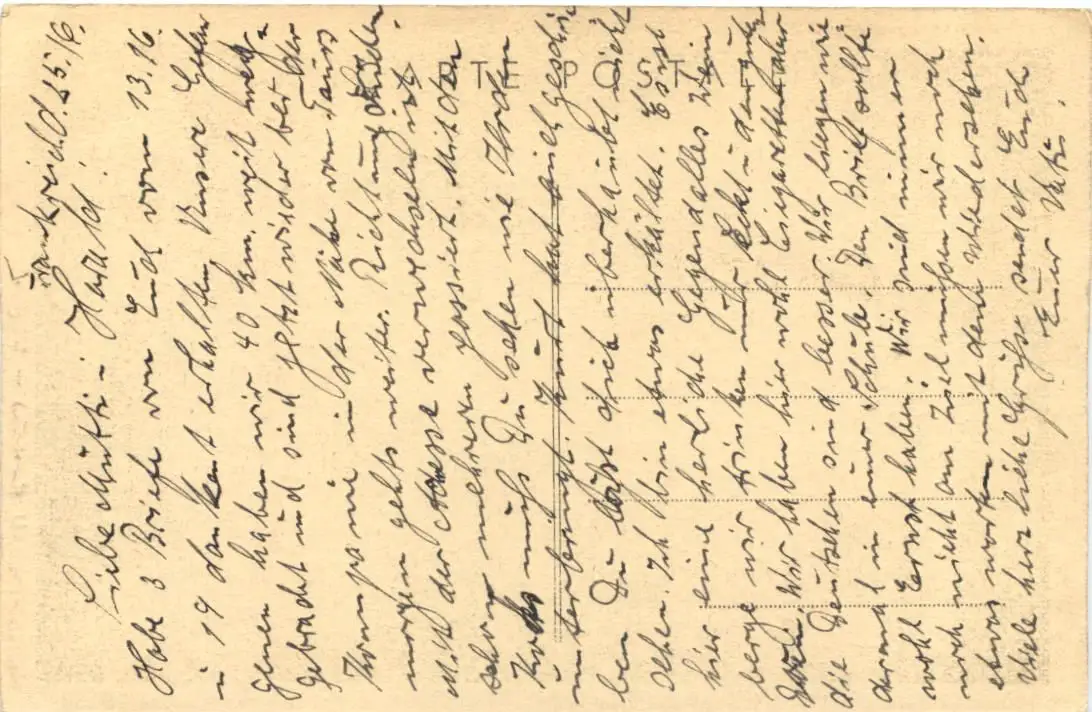 Frankreich d. 15./16.
Liebe Mutti u. Harald!
Habe 3 Briefe von Euch vom 13. 16.
u. 19 dankent erhalten, Unsere Gefan
genen haben wir 40 km. weit weg
gebracht und sind jetzt wieder bei der
Kompanie in der Nähe von Tours
morgen gehts weiter. Richtung Süden.
Mit der Adresse verwechseln ist
schon mehreren passiert. Mit den
Kurs muß Du sehen wie Ihr den
unterbringt. Kurt hat mich geschrie
ben Du läßt dich überhaupt nicht
sehen. Ich bin etwas erkältet. Es ist
hier eine herliche Gegend alles Wein
berge wir trinken nur Sekt u. der gute
Wir haben hier wohl Cigaretten aber
die Deutschen sind besser. Wir liegen wie
in einer Schule, Den Brief sollte
wohl Ernst haben. Wir sind immer
noch nicht am Ziel müssen wir noch
etwas warten mit dem Wiedersehen.
Viele herzliche Grüße sendet Euch
Euer Vati.
CARTE POSTALE